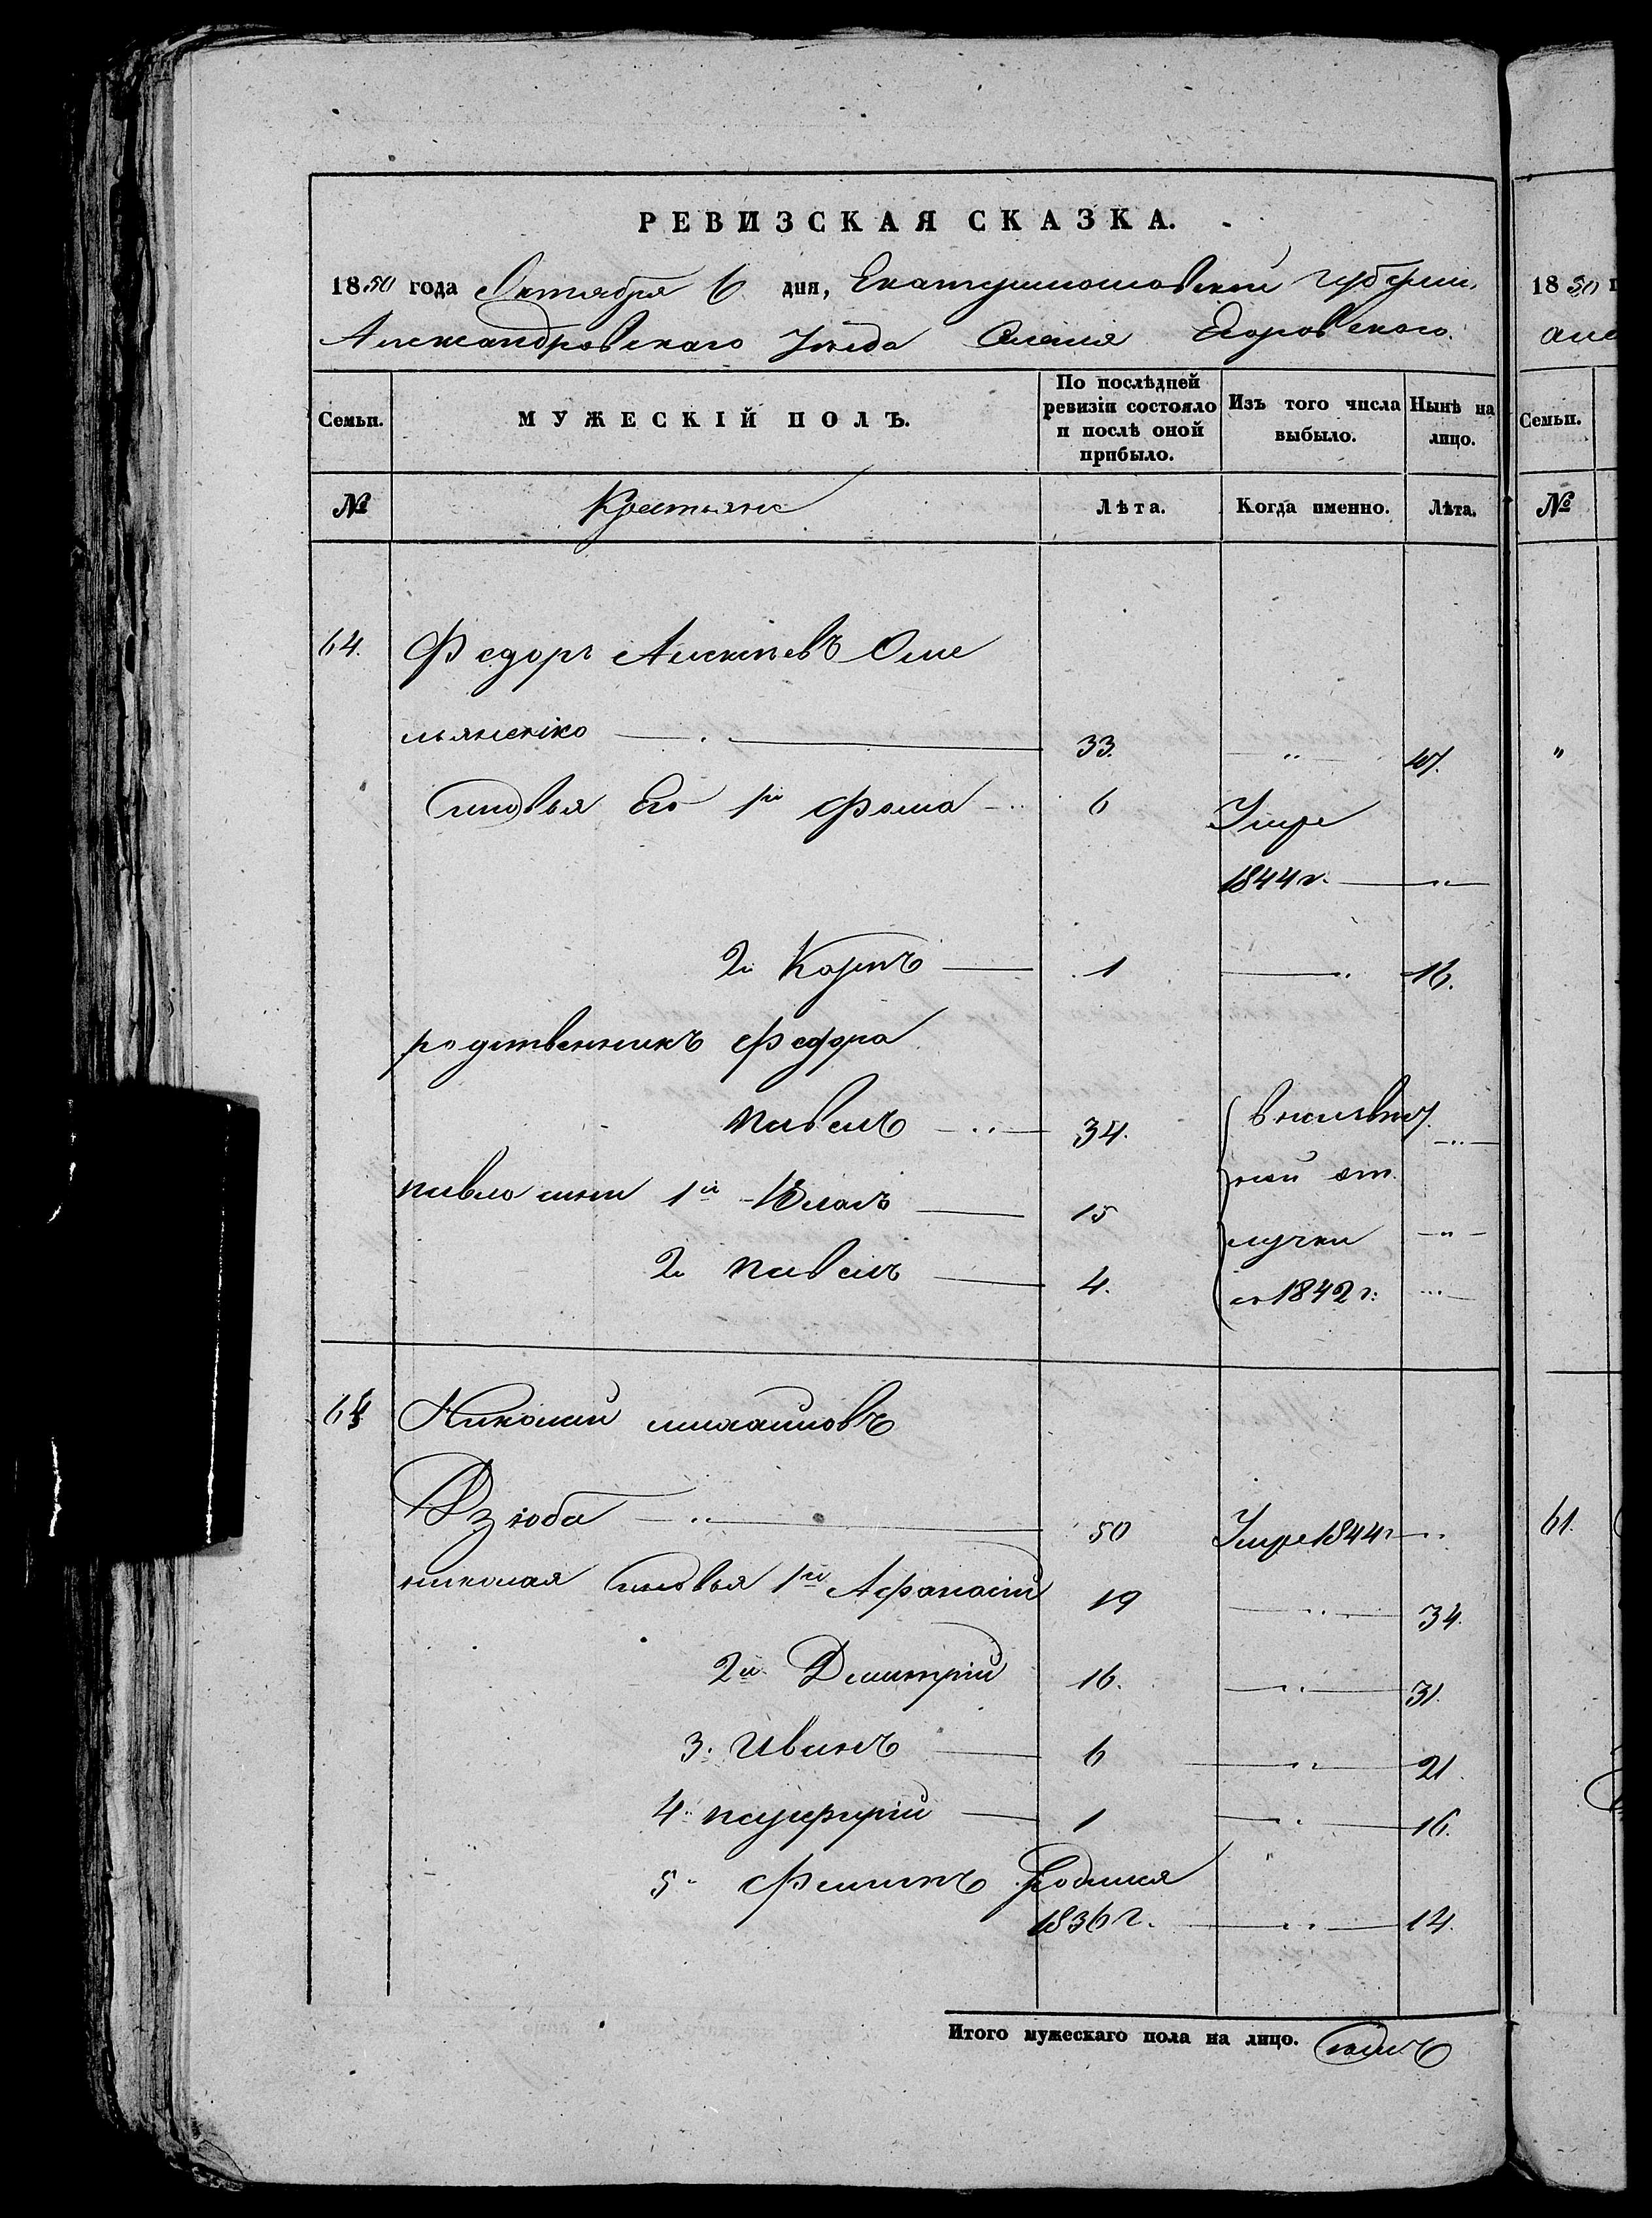 РЕВИЗСКАЯ СКАЗКА.
1850 года Октября 6 дня, Екатеринославской губерніи,
Александровскаго Уѣзда Селенія Егоровскаго.
Семьи. МУЖЕСКІЙ ПОЛЪ. По послѣдней ревизіи состояло и послѣ оной прибыло. Изъ того числа выбыло. Нынѣ на лицо.
№ Крестьяне Лѣта. Когда именно. Лѣта.
64. Федоръ Алексѣевъ Оме
льяненко 33. 47.
Сыновья Его 1й Фома 6 Умре
1844 г.
2й Карпъ 1 16.
родственникъ Федора
Павелъ 34. в неизвѣст
ной от
павла сыни 1й Власъ 15
лучки
2й Павелъ 4. съ 1842 г:
Николай михайловъ
Дзюба 50 Умре 1844 г
николая Сыновья 1й Афанасій 19 34.
2й Дмитрій 16. 31.
3. Иванъ 6 21.
4. порфирій 1 16.
5. Филипъ Родился
1836 г. 14.
Итого мужескаго пола на лицо. семь
1850
Семьи.
№
61.